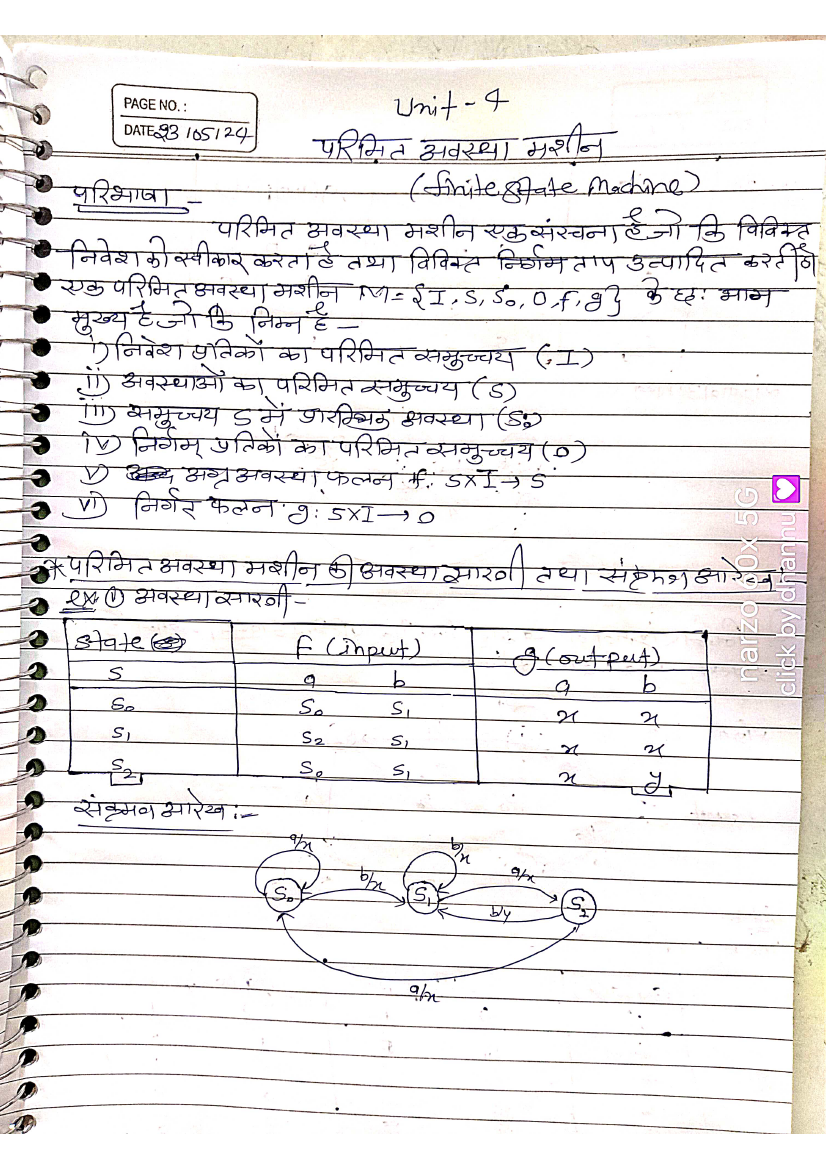 PAGE NO.:
DATE 23/05/24
Unit - 4
परिमित अवस्था मशीन
(finite state Machine)
परिभाषा -
परिमित अवस्था मशीन एक संरचना है जो कि विविक्त
निवेश को स्वीकार करता है तथा विविक्त निर्गम ताप उत्पादित करती है।
एक परिमित अवस्था मशीन M = {I, S, S₀, O, f, g} के छः भाग
मुख्य है जो कि निम्न है -
i) निवेश प्रतिकों का परिमित समुच्चय (I)
ii) अवस्थाओं का परिमित समुच्चय (S)
iii) समुच्चय S में प्रारम्भिक अवस्था (S₀)
iv) निर्गम् प्रतिकों का परिमित समुच्चय (O)
v) अगृ अवस्था फलन f: S×I → S
vi) निर्गर फलन g: S×I → O
* परिमित अवस्था मशीन की अवस्था सारणी तथा संक्रमण आरेख :-
ex ① अवस्था सारणी -
State f (input) g (output)
S a b a b
S₀ S₀ S₁ x x
S₁ S₂ S₁ x x
S₂ S₀ S₁ x y
संक्रमण आरेख :-
a/x b/x b/x a/x
S₀ S₁ S₂
b/y
a/x
narzo 60x 5G
click by dhannu